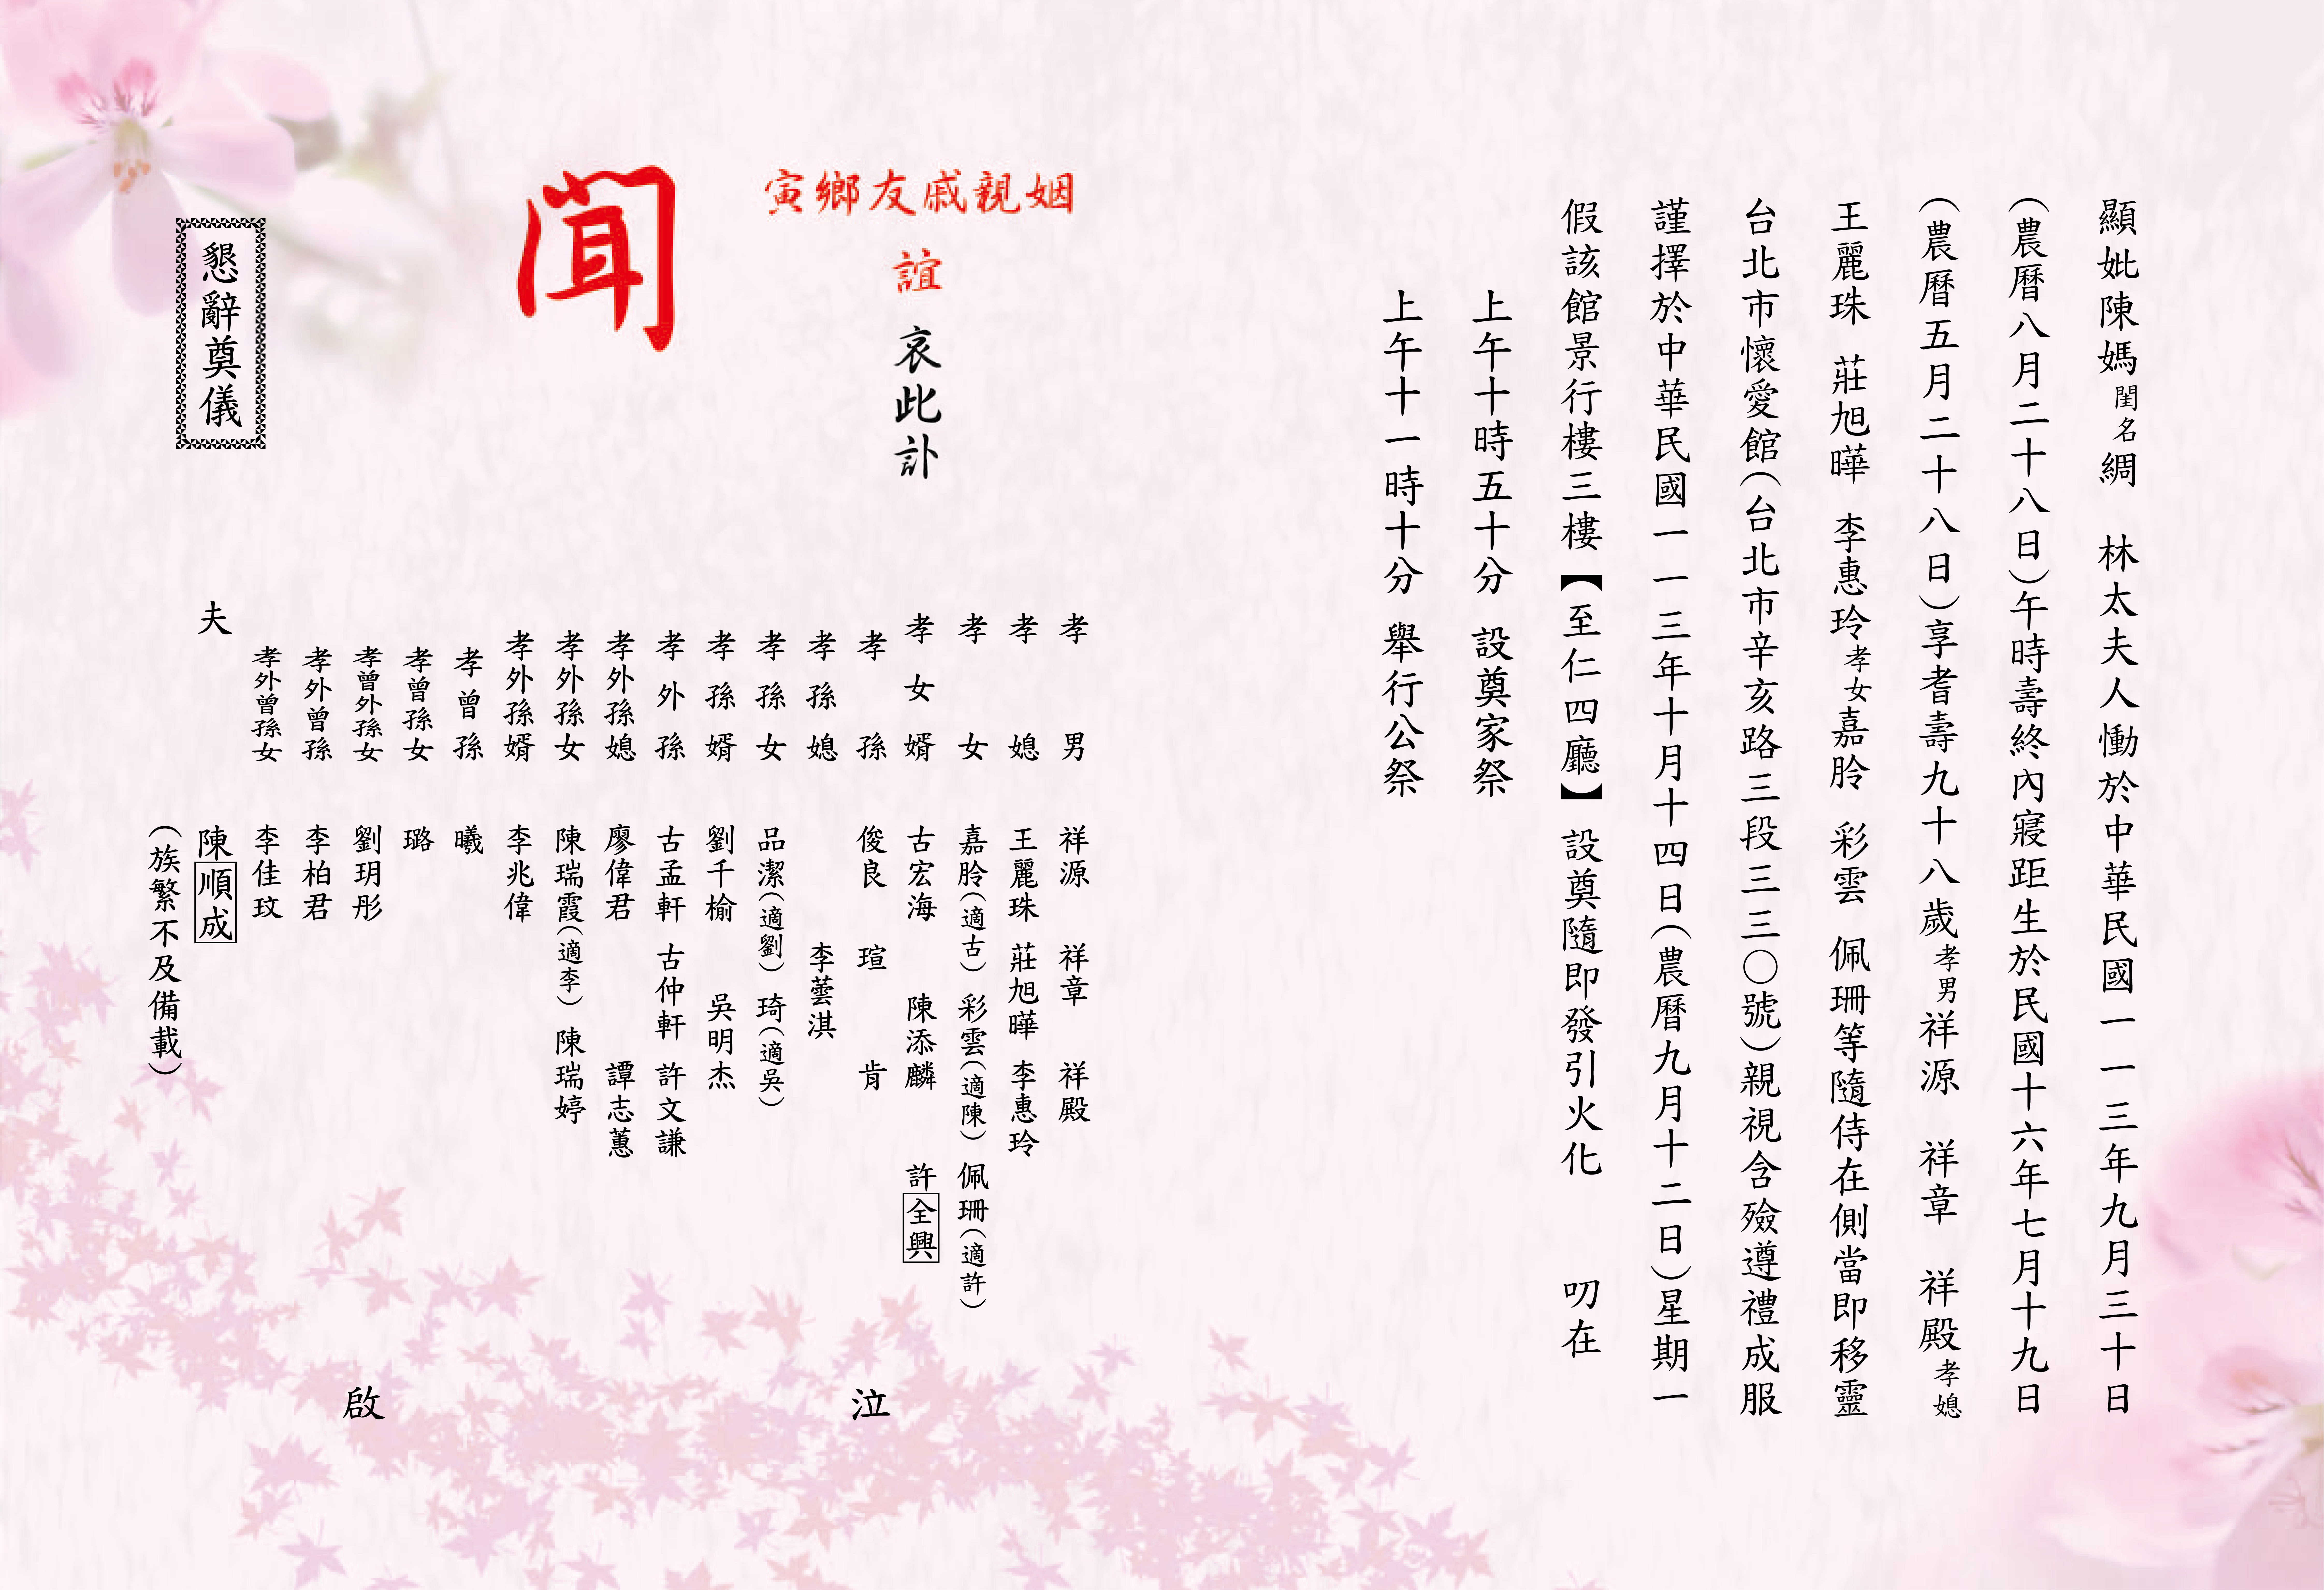 顯妣陳媽閨名綢　林太夫人慟於中華民國一一三年九月三十日
(農曆八月二十八日)午時壽終內寢距生於民國十六年七月十九日
(農曆五月二十八日)享耆壽九十八歲孝男祥源　祥章　祥殿孝媳
王麗珠　莊旭曄　李惠玲孝女嘉朎　彩雲　佩珊等隨侍在側當即移靈
台北市懷愛館(台北市辛亥路三段三三〇號)親視含殮遵禮成服
謹擇於中華民國一一三年十月十四日(農曆九月十二日)星期一
假該館景行樓三樓【至仁四廳】設奠隨即發引火化　叨在
上午十時五十分　設奠家祭
上午十一時十分　舉行公祭
姻親戚友鄉寅
誼　哀此訃
聞
孝男　祥源　祥章　祥殿
孝媳　王麗珠　莊旭曄　李惠玲
孝女　嘉朎(適古)　彩雲(適陳)　佩珊(適許)
孝女婿　古宏海　陳添麟　許全興
孝孫　俊良　瑄　肯
孝孫媳　李蕓淇
孝孫女　品潔(適劉)　琦(適吳)
孝孫婿　劉千榆　吳明杰
孝外孫　古孟軒　古仲軒　許文謙
孝外孫媳　廖偉君　譚志蕙
孝外孫女　陳瑞霞(適李)　陳瑞婷
孝外孫婿　李兆偉
孝曾孫　曦
孝曾孫女　璐
孝曾外孫女　劉玥彤
孝外曾孫　李柏君
孝外曾孫女　李佳玟
夫　陳順成
(族繁不及備載)
泣　啟
懇辭奠儀